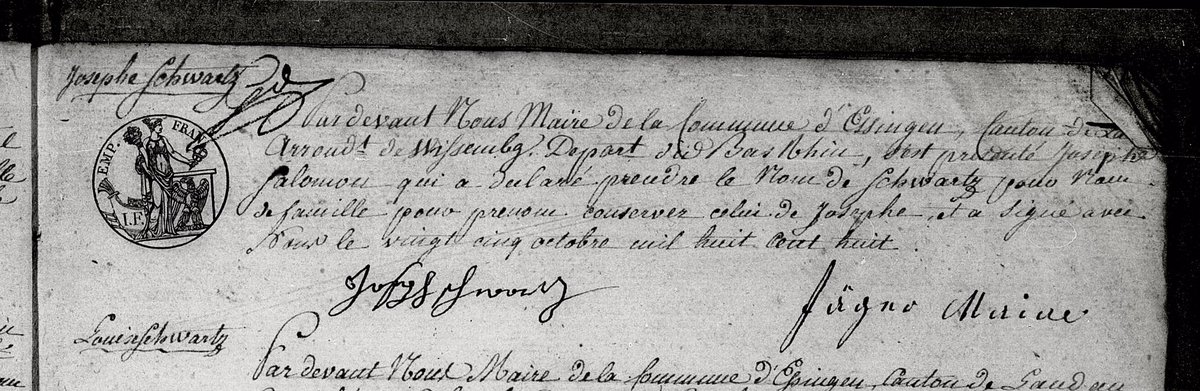 Josephe Schwartz
EMP. FRAN
Pardevant Nous Maire de la Commune d'Essingen, Canton de
Arrondt. de Wissembg. Depart. du Bas Rhin, s'est presenté Joseph
Salomon qui a declaré prendre le Nom de Schwartz pour Nom
de famille pour prenom conserver celui de Josephe, et a signé avec
Nous le vingt cinq octobre mil huit cent huit.
Joseph Schwartz
Jägno Maire
Louis Schwartz
Pardevant Nous Maire de la Commune d'Essingen, Canton de Landau